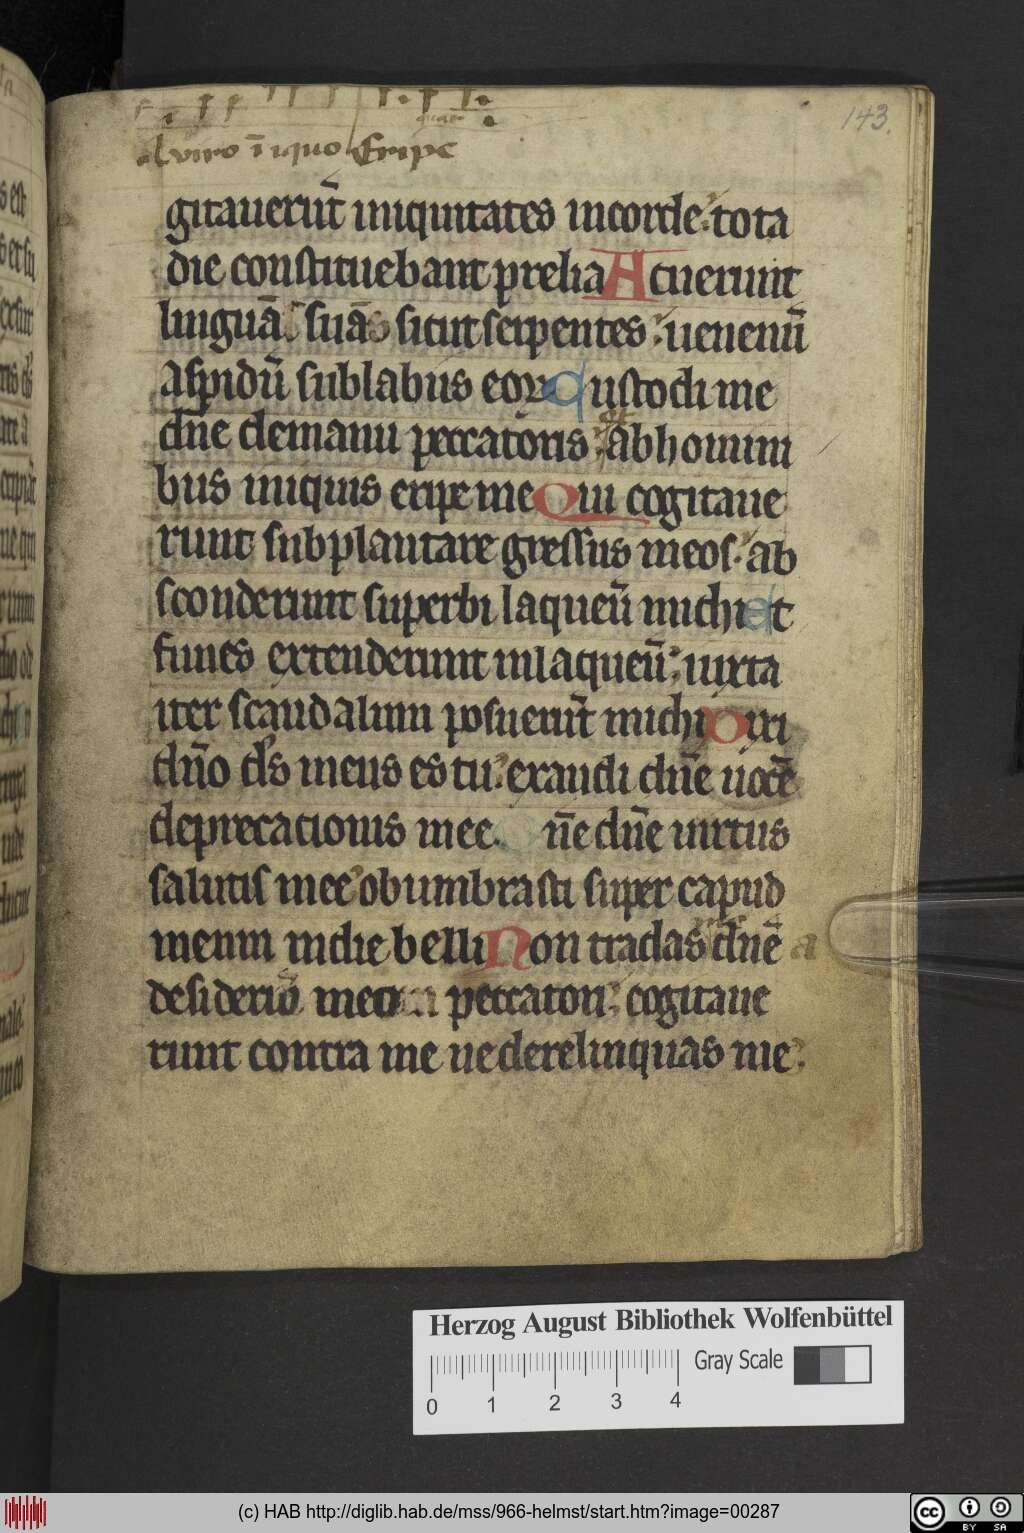 143.
A viro iniquo Eripe
gitauerūt iniquitates incorde: tota
die constituebant prelia Acuerunt
linguā suā sicut serpentes: uenenū
aspidū sub labiis eorꝝ Custodi me
dn̄e demanu peccatoris: abhomini
bus iniquis eripe me Qui cogitaue
runt subplantare gressus meos: ab
sconderunt superbi laqueū michi Et
funes extenderunt inlaqueū: iuxta
iter scandalum posuerūt michi Dixi
dn̄o ds̄ meus es tu: exaudi dn̄e uocē
deprecationis mee. n̄e dn̄e uirtus
salutis mee obumbrasti super capud
meum indie belli Non tradas dn̄e a
desiderio meo peccatori: cogitaue
runt contra me ne derelinquas me:
Herzog August Bibliothek Wolfenbüttel
Gray Scale
0 1 2 3 4
(c) HAB http://diglib.hab.de/mss/966-helmst/start.htm?image=00287
cc BY SA